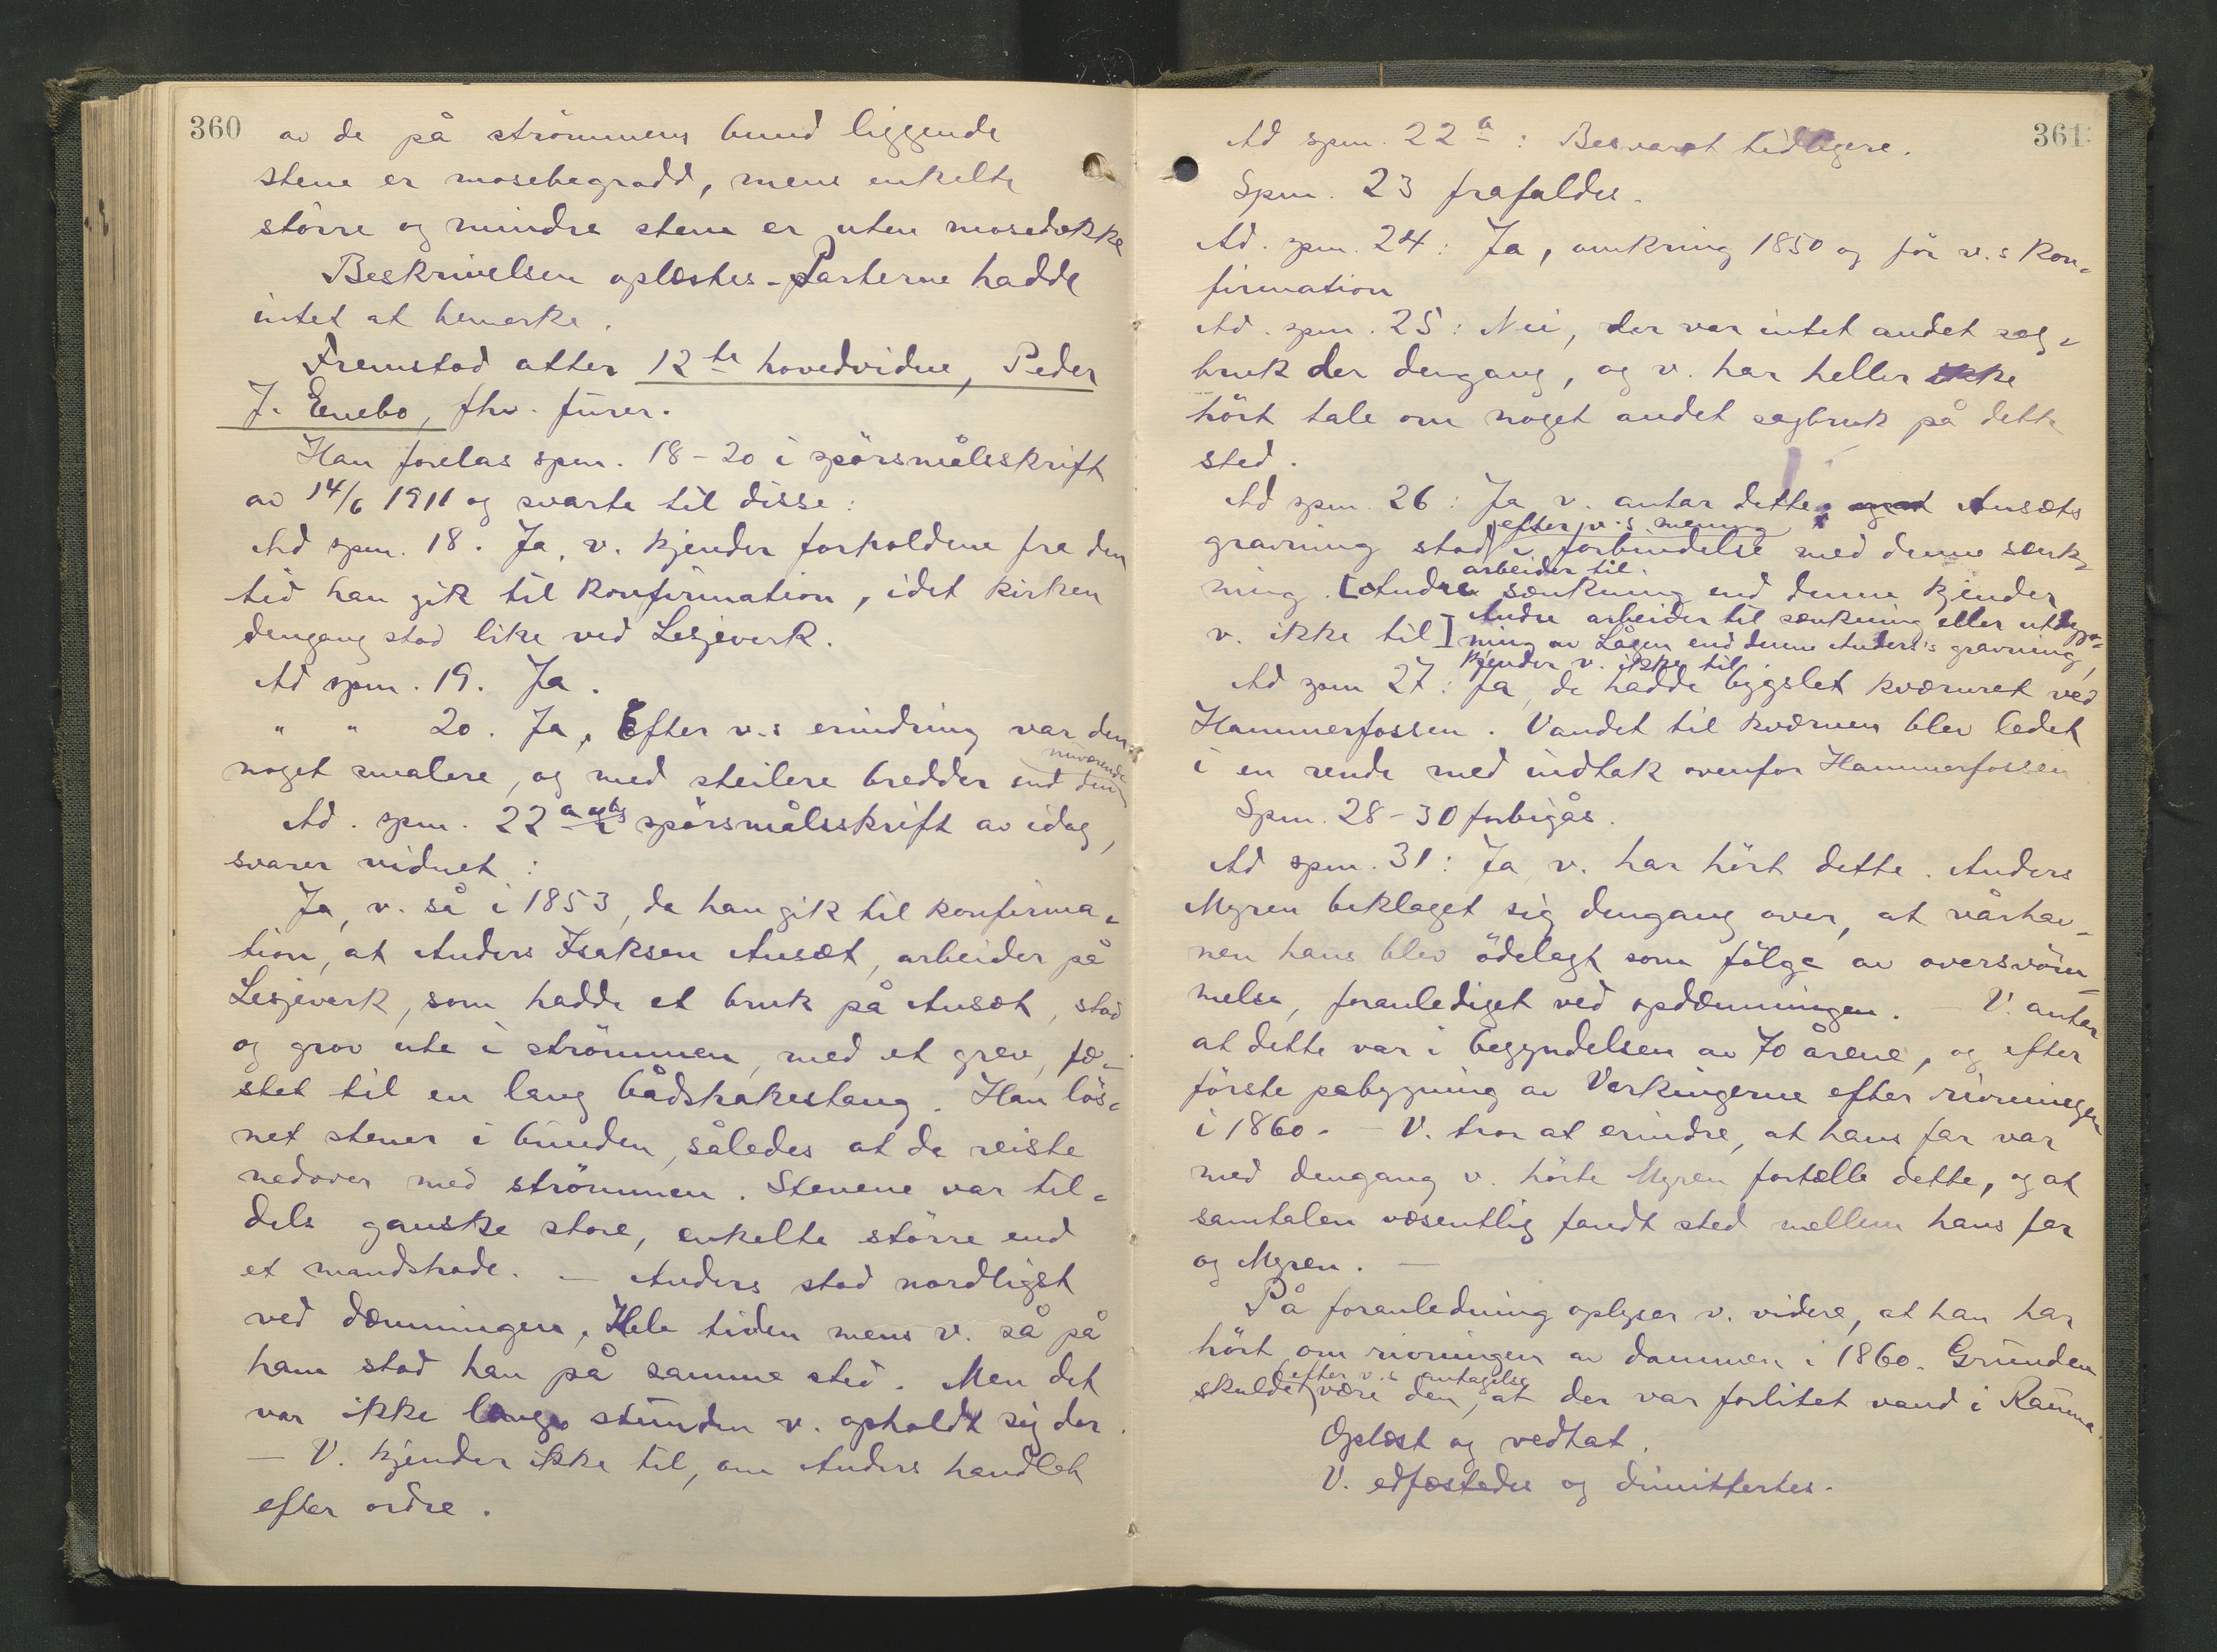 360
av de på strømmens bund liggende
stene er mosebegrodd, mens enkelte
større og mindre stene er uten mosedekke
Beskrivelsen oplæstes - Parterne hadde
intet at bemerke.
Fremstod atter 12te hovedvidne, Peder
J. Enebo, fhv. furer.
Han forelas spm. 18-20 i spørsmålsskrift
av 14/6 1911 og svarte til disse:
Ad spm. 18. Ja, v. kjender forholdene fra den
tid han gik til konfirmation, idet kirken
dengang stod like ved Lesjeverk.
Ad spm. 19. Ja.
" " 20. Ja, Efter v.s erindring var den
noget smalere, og med steilere bredder end den nuværende
Ad. spm. 22 a spørsmålsskrift av idag,
svarer vidnet:
Ja, v. så i 1853, da han gik til konfirma-
tion, at Anders Isaksen Ansæt, arbeider på
Lesjeverk, som hadde et bruk på Ansæt, stod
og grov ute i strømmen, med et grev, fæ-
stet til en lang bådshakestang. Han løs-
net stener i bunden, således at de reiste
nedover med strømmen. Stenene var til-
dels ganske store, enkelte større end
et mandshode. - Anders stod nordligst
ved dæmningen. Hele tiden mens v. så på
ham stod han på samme sted. Men det
var ikke lange stunden v. opholdt sig der.
- V. kjender ikke til, om Anders handlet
efter ordre.
361
Ad spm. 22 a: Besvaret tidligere.
Spm. 23 frafaldes.
Ad. spm. 24: Ja, omkring 1850 og før v.s kon-
firmation
Ad. spm. 25: Nei, der var intet andet sag-
bruk der dengang, og v. har heller ikke
hørt tale om noget andet sagbruk på dette
sted.
Ad spm. 26: Ja v. antar dette. Ansæts
gravning stod efter v.s mening i forbindelse med denne sænk-
ning. [Andre arbeider til sænkning end denne kjender
v. ikke til] Andre arbeider til sænkning eller utdyp-
ning av Lågen end denne Anders's gravning,
kjender v. ikke til.
Ad spm 27: Ja, de hadde bygslet kværnret ved
Hammerfossen. Vandet til kværnen blev ledet
i en rende med indtak ovenfor Hammerfossen
Spm. 28-30 forbigås.
Ad spm. 31: Ja, v. har hørt dette. Anders
Myren beklaget sig dengang over, at vårhav-
nen hans blev ødelagt som følge av oversvøm-
melse, foranlediget ved opdæmningen. - V. antar
at dette var i begyndelsen av 70 årene, og efter
første påbygning av Verkingerne efter rivningen
i 1860. - V. tror at erindre, at hans far var
med dengang v. hørte Myren fortælle dette, og at
samtalen væsentlig fandt sted mellem hans far
og Myren. -
På foranledning oplyser v. videre, at han har
hørt om rivningen av dammen i 1860. Grunden
skulde efter v.s antagelse være den, at der var forlitet vand i Rauma.
Oplæst og vedtat.
V. edfæstedes og dimittertes.